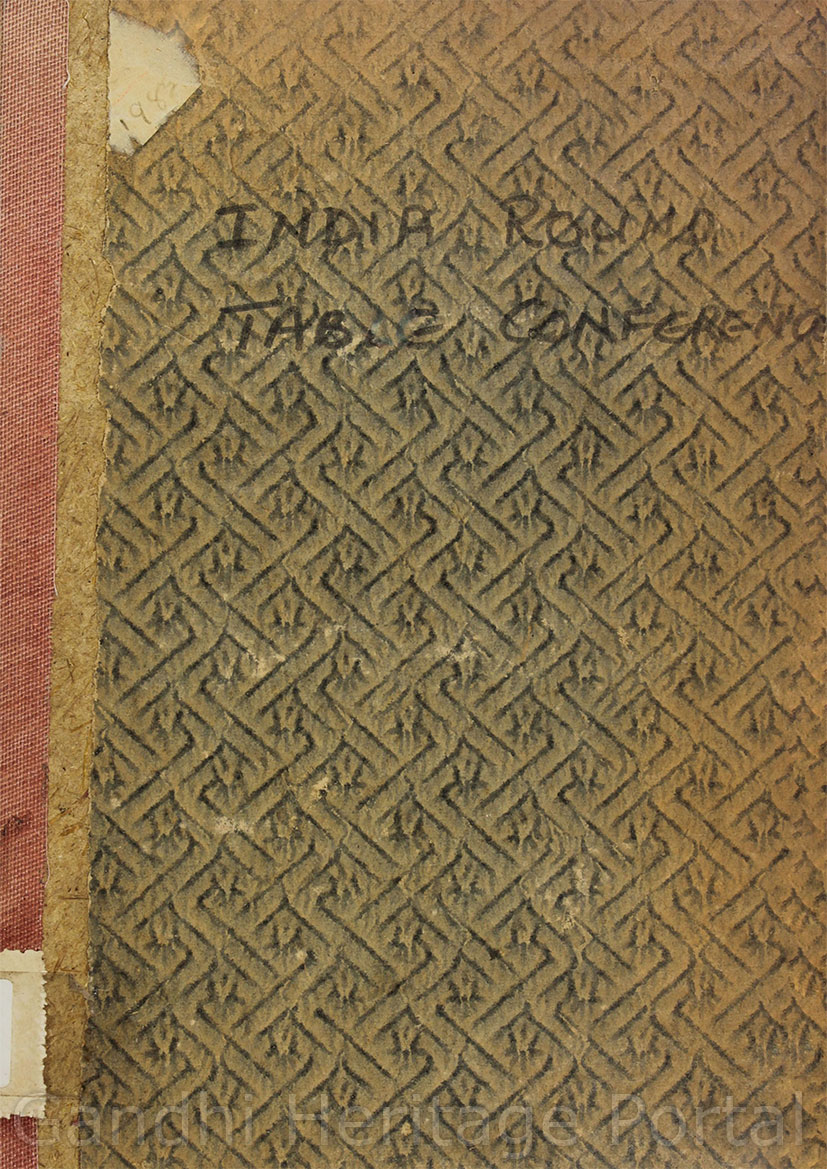 198
INDIA ROUND
TABLE CONFERENC
Gandhi Heritage Portal